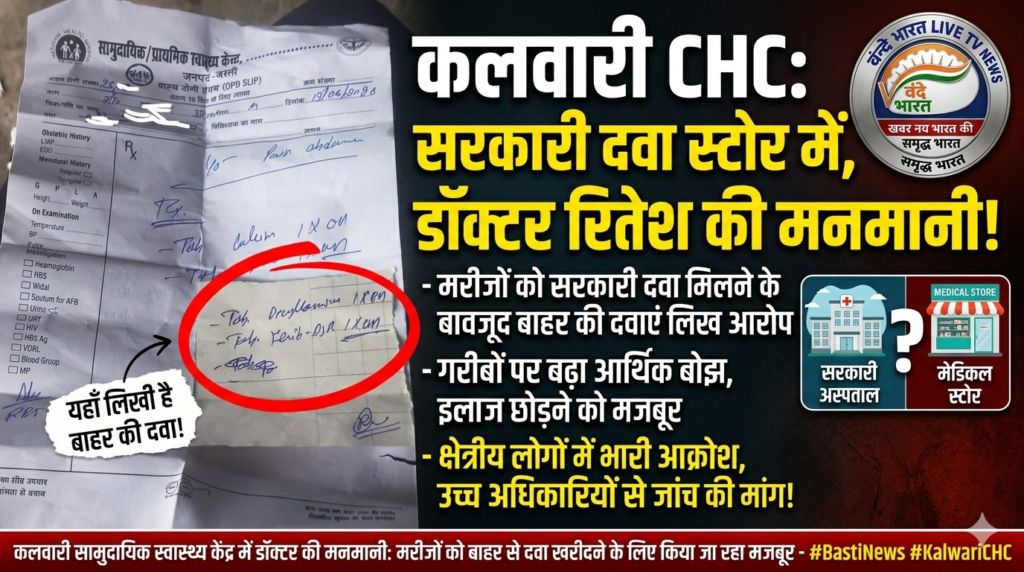 सामुदायिक/प्राथमिक स्वास्थ्य केन्द्र,
जनपद-बस्ती
(OPB SLIP)
दिनांक
Obstetric History
LMP
EDD
Menstural History
Regular
G P L A
Height Weight
On Examination
Temperature
BP
Pulse
Investigation
Heamoglobin
RBS
Widal
Soutum for AFB
Urine
URT
HIV
HBS Ag
VDRL
Blood Group
MP
Rx
Pain abdomen
यहाँ लिखी है
बाहर की दवा!
कलवारी CHC:
सरकारी दवा स्टोर में,
डॉक्टर रितेश की मनमानी!
- मरीजों को सरकारी दवा मिलने के
बावजूद बाहर की दवाएं लिख आरोप
- गरीबों पर बढ़ा आर्थिक बोझ,
इलाज छोड़ने को मजबूर
- क्षेत्रीय लोगों में भारी आक्रोश,
उच्च अधिकारियों से जांच की मांग!
वन्दे भारत LIVE TV NEWS
वंदे
भारत
खबर नय भारत की
समृद्ध भारत
समृद्ध भारत
सरकारी
अस्पताल
?
MEDICAL STORE
मेडिकल
स्टोर
कलवारी सामुदायिक स्वास्थ्य केंद्र में डॉक्टर की मनमानी: मरीजों को बाहर से दवा खरीदने के लिए किया जा रहा मजबूर - #BastiNews #KalwariCHC